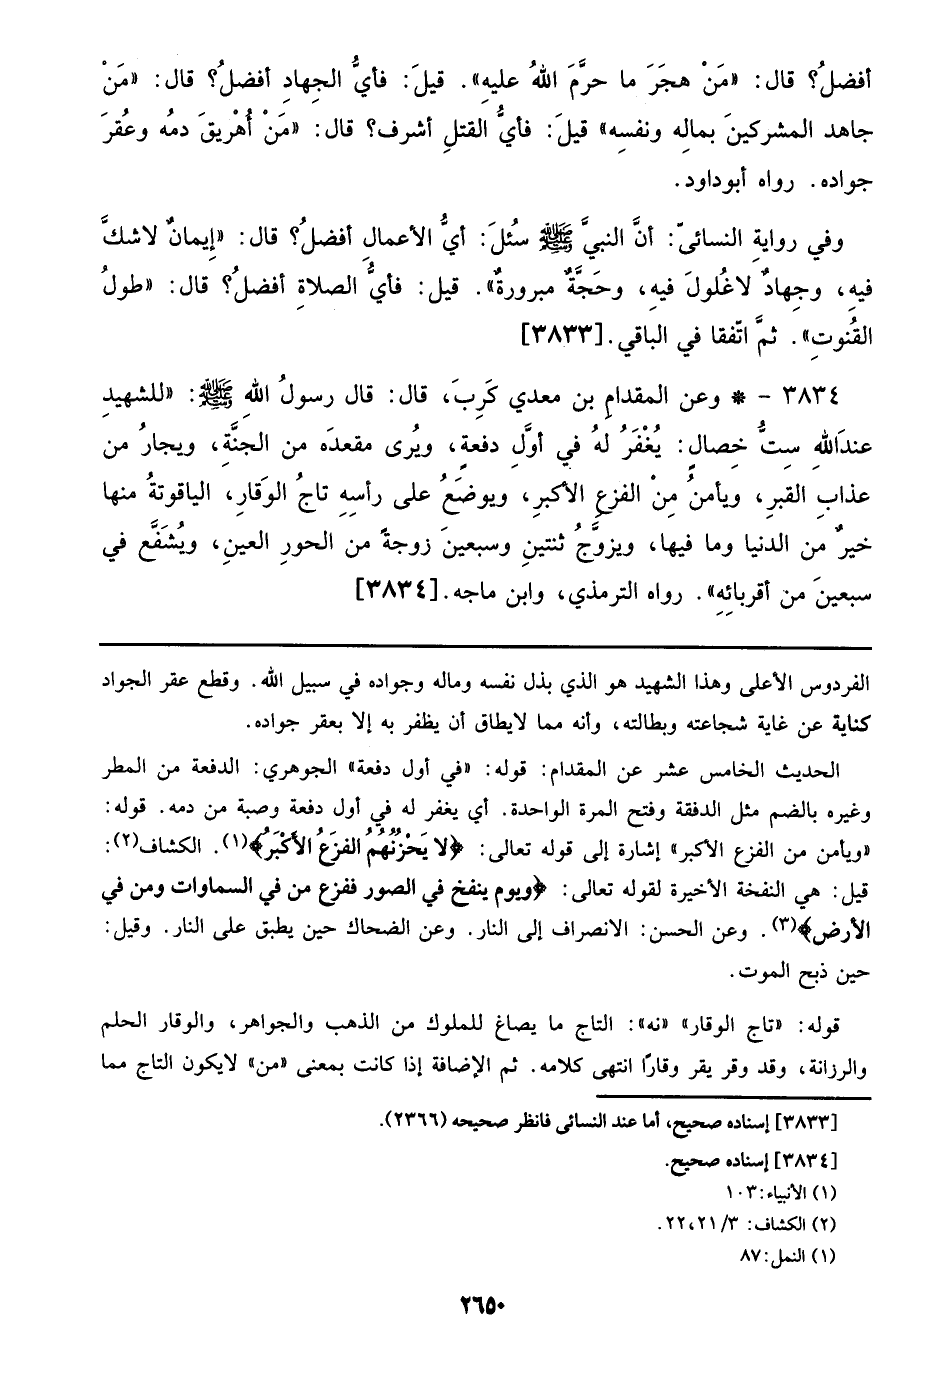 أفضلُ؟ قال: «مَنْ هجَرَ ما حرَّمَ اللهُ عليهِ». قيلَ: فأيُّ الجهادِ أفضلُ؟ قال: «مَنْ
جاهد المشركينَ بمالِه ونفسِه» قيلَ: فأيُّ القتلِ أشرف؟ قال: «مَنْ أُهْريقَ دمُه وعُقرَ
جواده. رواه أبوداود.
وفي روايةِ النسائيّ: أنَّ النبيَّ ﷺ سُئلَ: أيُّ الأعمالِ أفضلُ؟ قال: «إيمانٌ لاشكَّ
فيهِ، وجهادٌ لاغُلولَ فيهِ، وحَجَّةٌ مبرورةٌ». قيل: فأيُّ الصلاةِ أفضلُ؟ قال: «طولُ
القُنوتِ». ثمَّ اتّفقا في الباقي.[٣٨٣٣]
٣٨٣٤ – * وعن المقدامِ بن معدي كَرِبَ، قال: قال رسولُ اللهِ ﷺ: «للشهيدِ
عندَاللهِ ستُّ خصالٍ: يُغْفَرُ لهُ في أوَّلِ دفعةٍ، ويُرى مقعدَه من الجنَّةِ، ويجارُ من
عذابِ القبرِ، ويأمنُ مِنْ الفزعِ الأكبرِ، ويوضَعُ على رأسِهِ تاجُ الوَقارِ، الياقوتةُ منها
خيرٌ من الدنيا وما فيها، ويزوَّجُ ثنتينِ وسبعينَ زوجةً من الحورِ العينِ، ويُشفَّع في
سبعينَ من أقربائِهِ». رواه الترمذي، وابن ماجه.[٣٨٣٤]
الفردوس الأعلى وهذا الشهيد هو الذي بذل نفسه وماله وجواده في سبيل الله. وقطع عقر الجواد
كناية عن غاية شجاعته وبطالته، وأنه مما لايطاق أن يظفر به إلا بعقر جواده.
الحديث الخامس عشر عن المقدام: قوله: «في أول دفعة» الجوهري: الدفعة من المطر
وغيره بالضم مثل الدفقة وفتح المرة الواحدة. أي يغفر له في أول دفعة وصبة من دمه. قوله:
«ويأمن من الفزع الأكبر» إشارة إلى قوله تعالى: ﴿لا يَحْزُنُهُمُ الفَزَعُ الأَكْبَرُ﴾(١). الكشاف(٢):
قيل: هي النفخة الأخيرة لقوله تعالى: ﴿ويوم ينفخ في الصور ففزع من في السماوات ومن في
الأرض﴾(٣). وعن الحسن: الانصراف إلى النار. وعن الضحاك حين يطبق على النار. وقيل:
حين ذبح الموت.
قوله: «تاج الوقار» «نه»: التاج ما يصاغ للملوك من الذهب والجواهر، والوقار الحلم
والرزانة، وقد وقر يقر وقارًا انتهى كلامه. ثم الإضافة إذا كانت بمعنى «من» لايكون التاج مما
[٣٨٣٣] إسناده صحيح، أما عند النسائى فانظر صحيحه (٢٣٦٦).
[٣٨٣٤] إسناده صحيح.
(١) الأنبياء:١٠٣
(٢) الكشاف: ٢٢،٢١/٣.
(١) النمل:٨٧
٢٦٥٠